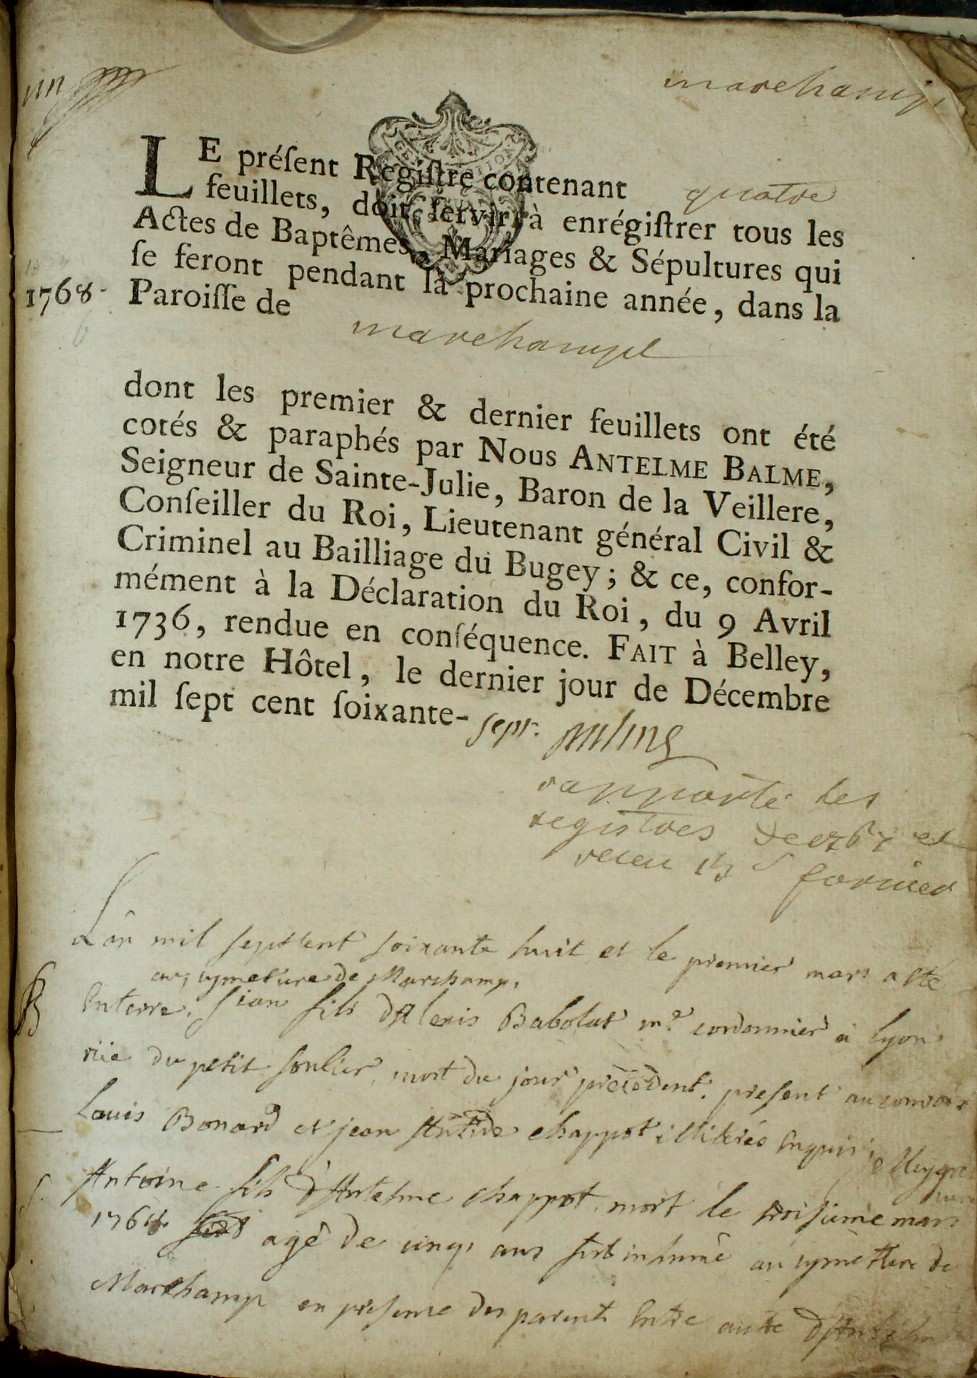 marchamp
LE préſent Regiſtre contenant quatre
feuillets, doit ſervir à enrégiſtrer tous les
Actes de Baptêmes, Mariages & Sépultures qui
ſe feront pendant la prochaine année, dans la
1768 Paroiſſe de
marchampt
dont les premier & dernier feuillets ont été
cotés & paraphés par Nous ANTELME BALME,
Seigneur de Sainte-Julie, Baron de la Veillere,
Conſeiller du Roi, Lieutenant général Civil &
Criminel au Bailliage du Bugey; & ce, confor-
mément à la Déclaration du Roi, du 9 Avril
1736, rendue en conſéquence. FAIT à Belley,
en notre Hôtel, le dernier jour de Décembre
mil ſept cent ſoixante-sept.
rapporté les
registres de 1767 et
receu
L'an mil sept cent soixante huit et le premier mars a été
au cymetiere de Marchamp,
Enterré. Jean fils d'Alexis Babolat m.e cordonnier a Lyon
rüe du petit soulier, mort du jour précédent. present au convoi
Louis Bonard et jean Antde chappot illiterés Enquis
Antoine fils d'Antelme chappot mort le troisieme mars
1768 agé de cinq ans fut inhumé au cymettiere de
Marchamp en presence des parents Entre autre